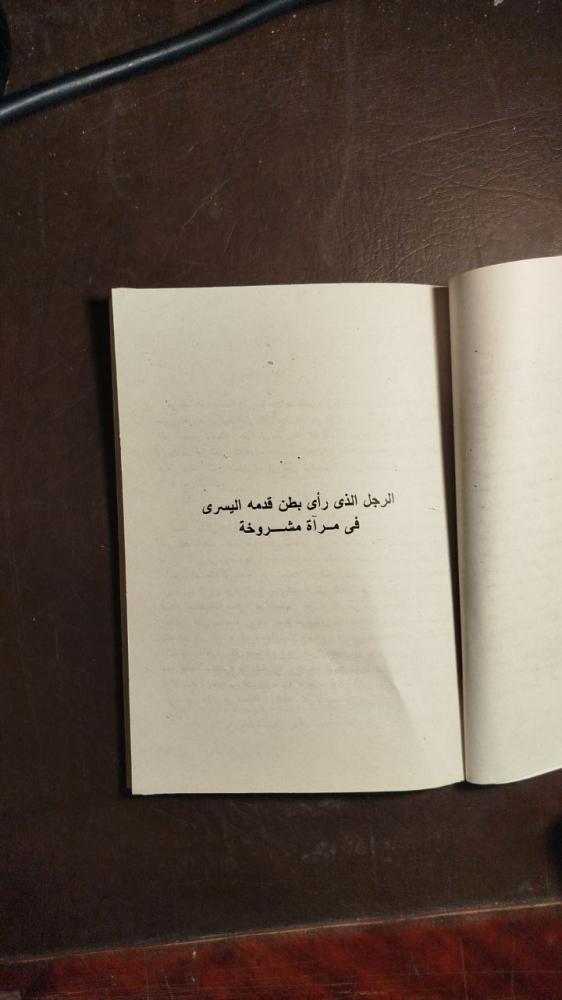 الرجل الذى رأى بطن قدمه اليسرى
فى مرآة مشروخة